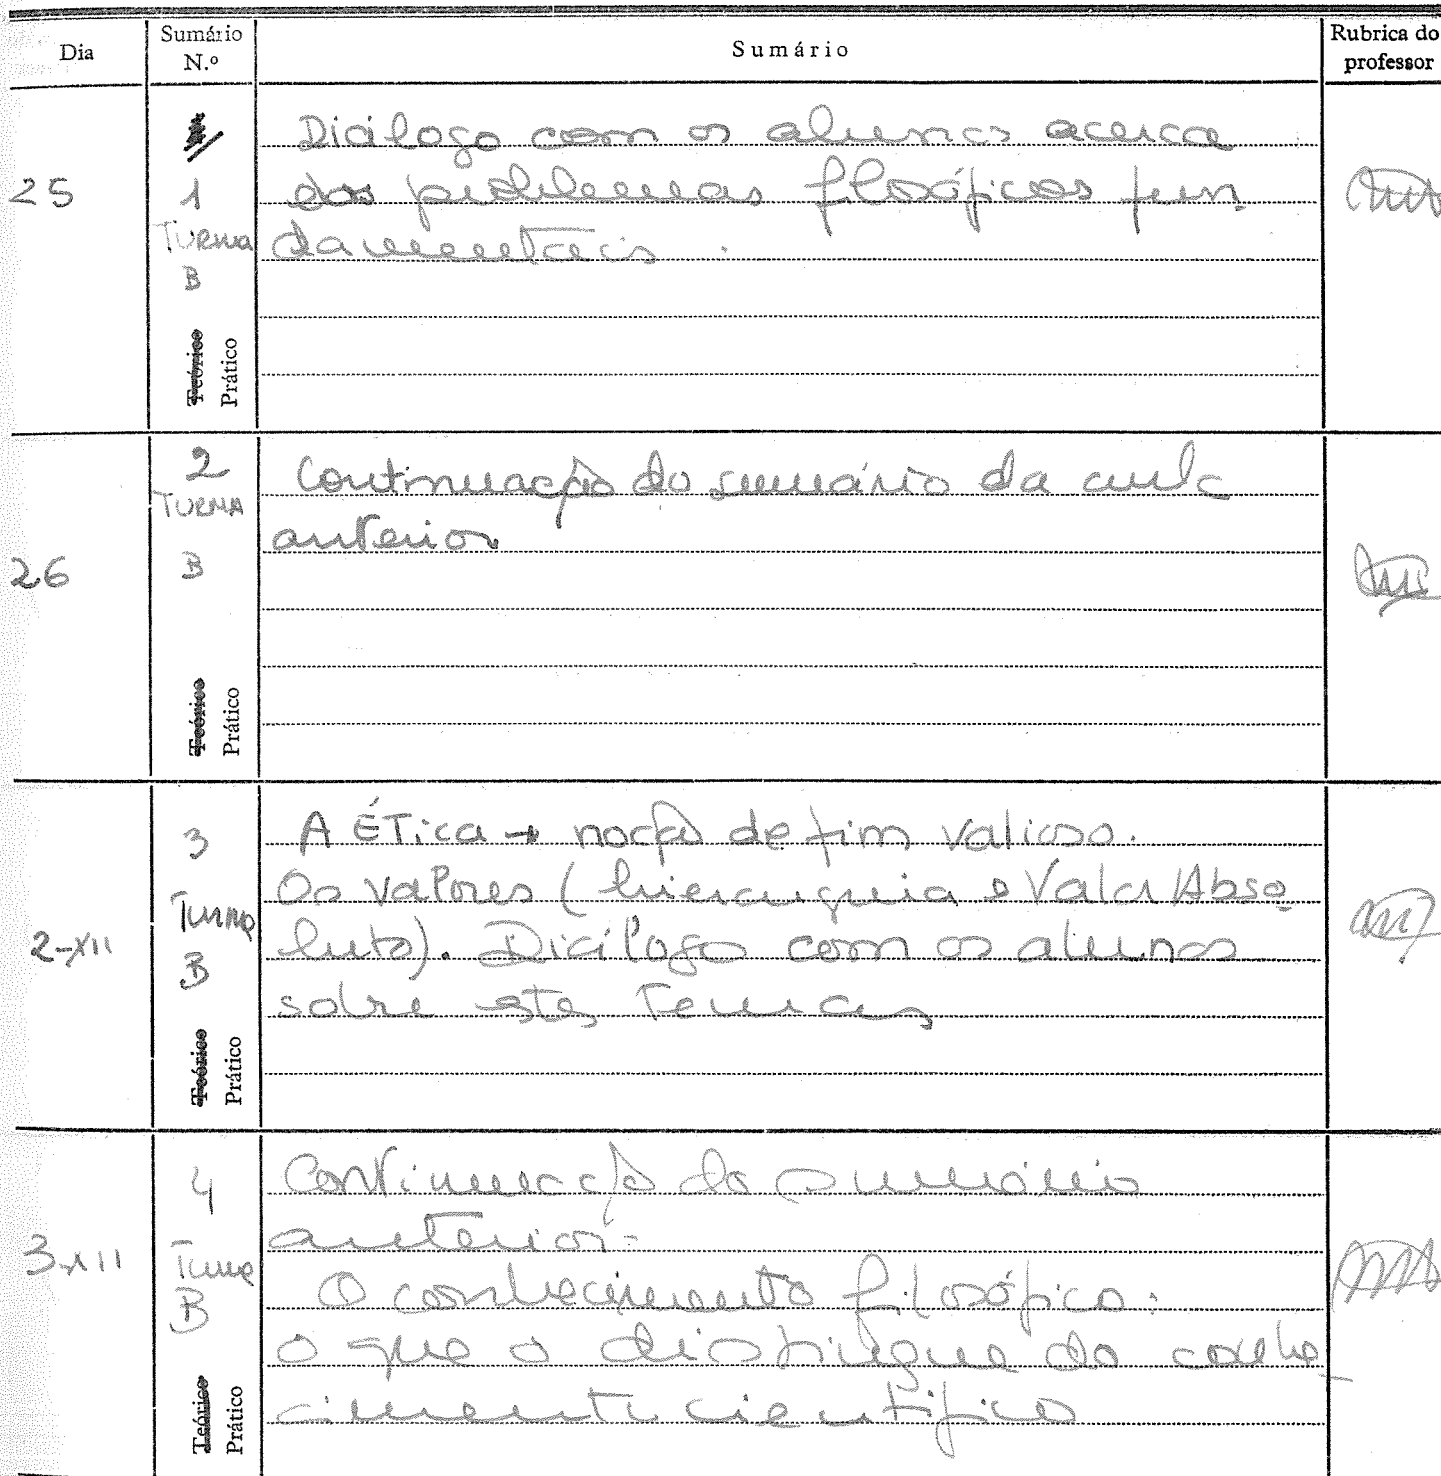 Dia
Sumário N.º
Sumário
Rubrica do professor
25
1
Turma
B
Teórico
Prático
Diálogo com os alunos acerca
dos problemas filosóficos fun
damentais.
26
2
TURMA
B
Teórico
Prático
Continuação do sumário da aula
anterior
2-XII
3
Turma
B
Teórico
Prático
A Ética → noção de fim valioso.
Os valores (hierarquia e Valor Abso
luto). Diálogo com os alunos
sobre estes temas
3-XII
4
Turma
B
Teórico
Prático
Continuação do sumário
anterior.
O conhecimento filosófico:
o que o distingue do conhe_
cimento científico